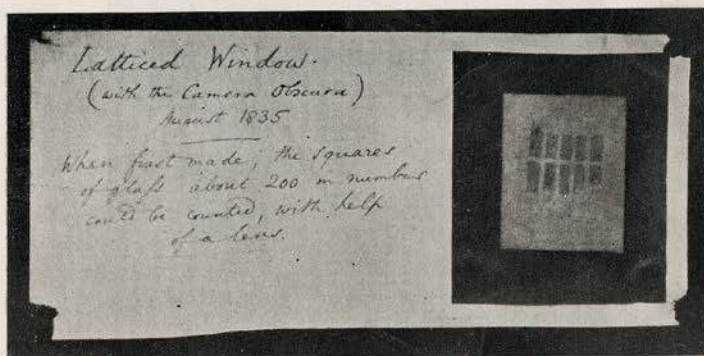 Latticed Window.
(with the Camera Obscura)
August 1835
When first made, the squares
of glass about 200 in number
could be counted, with help
of a lens.